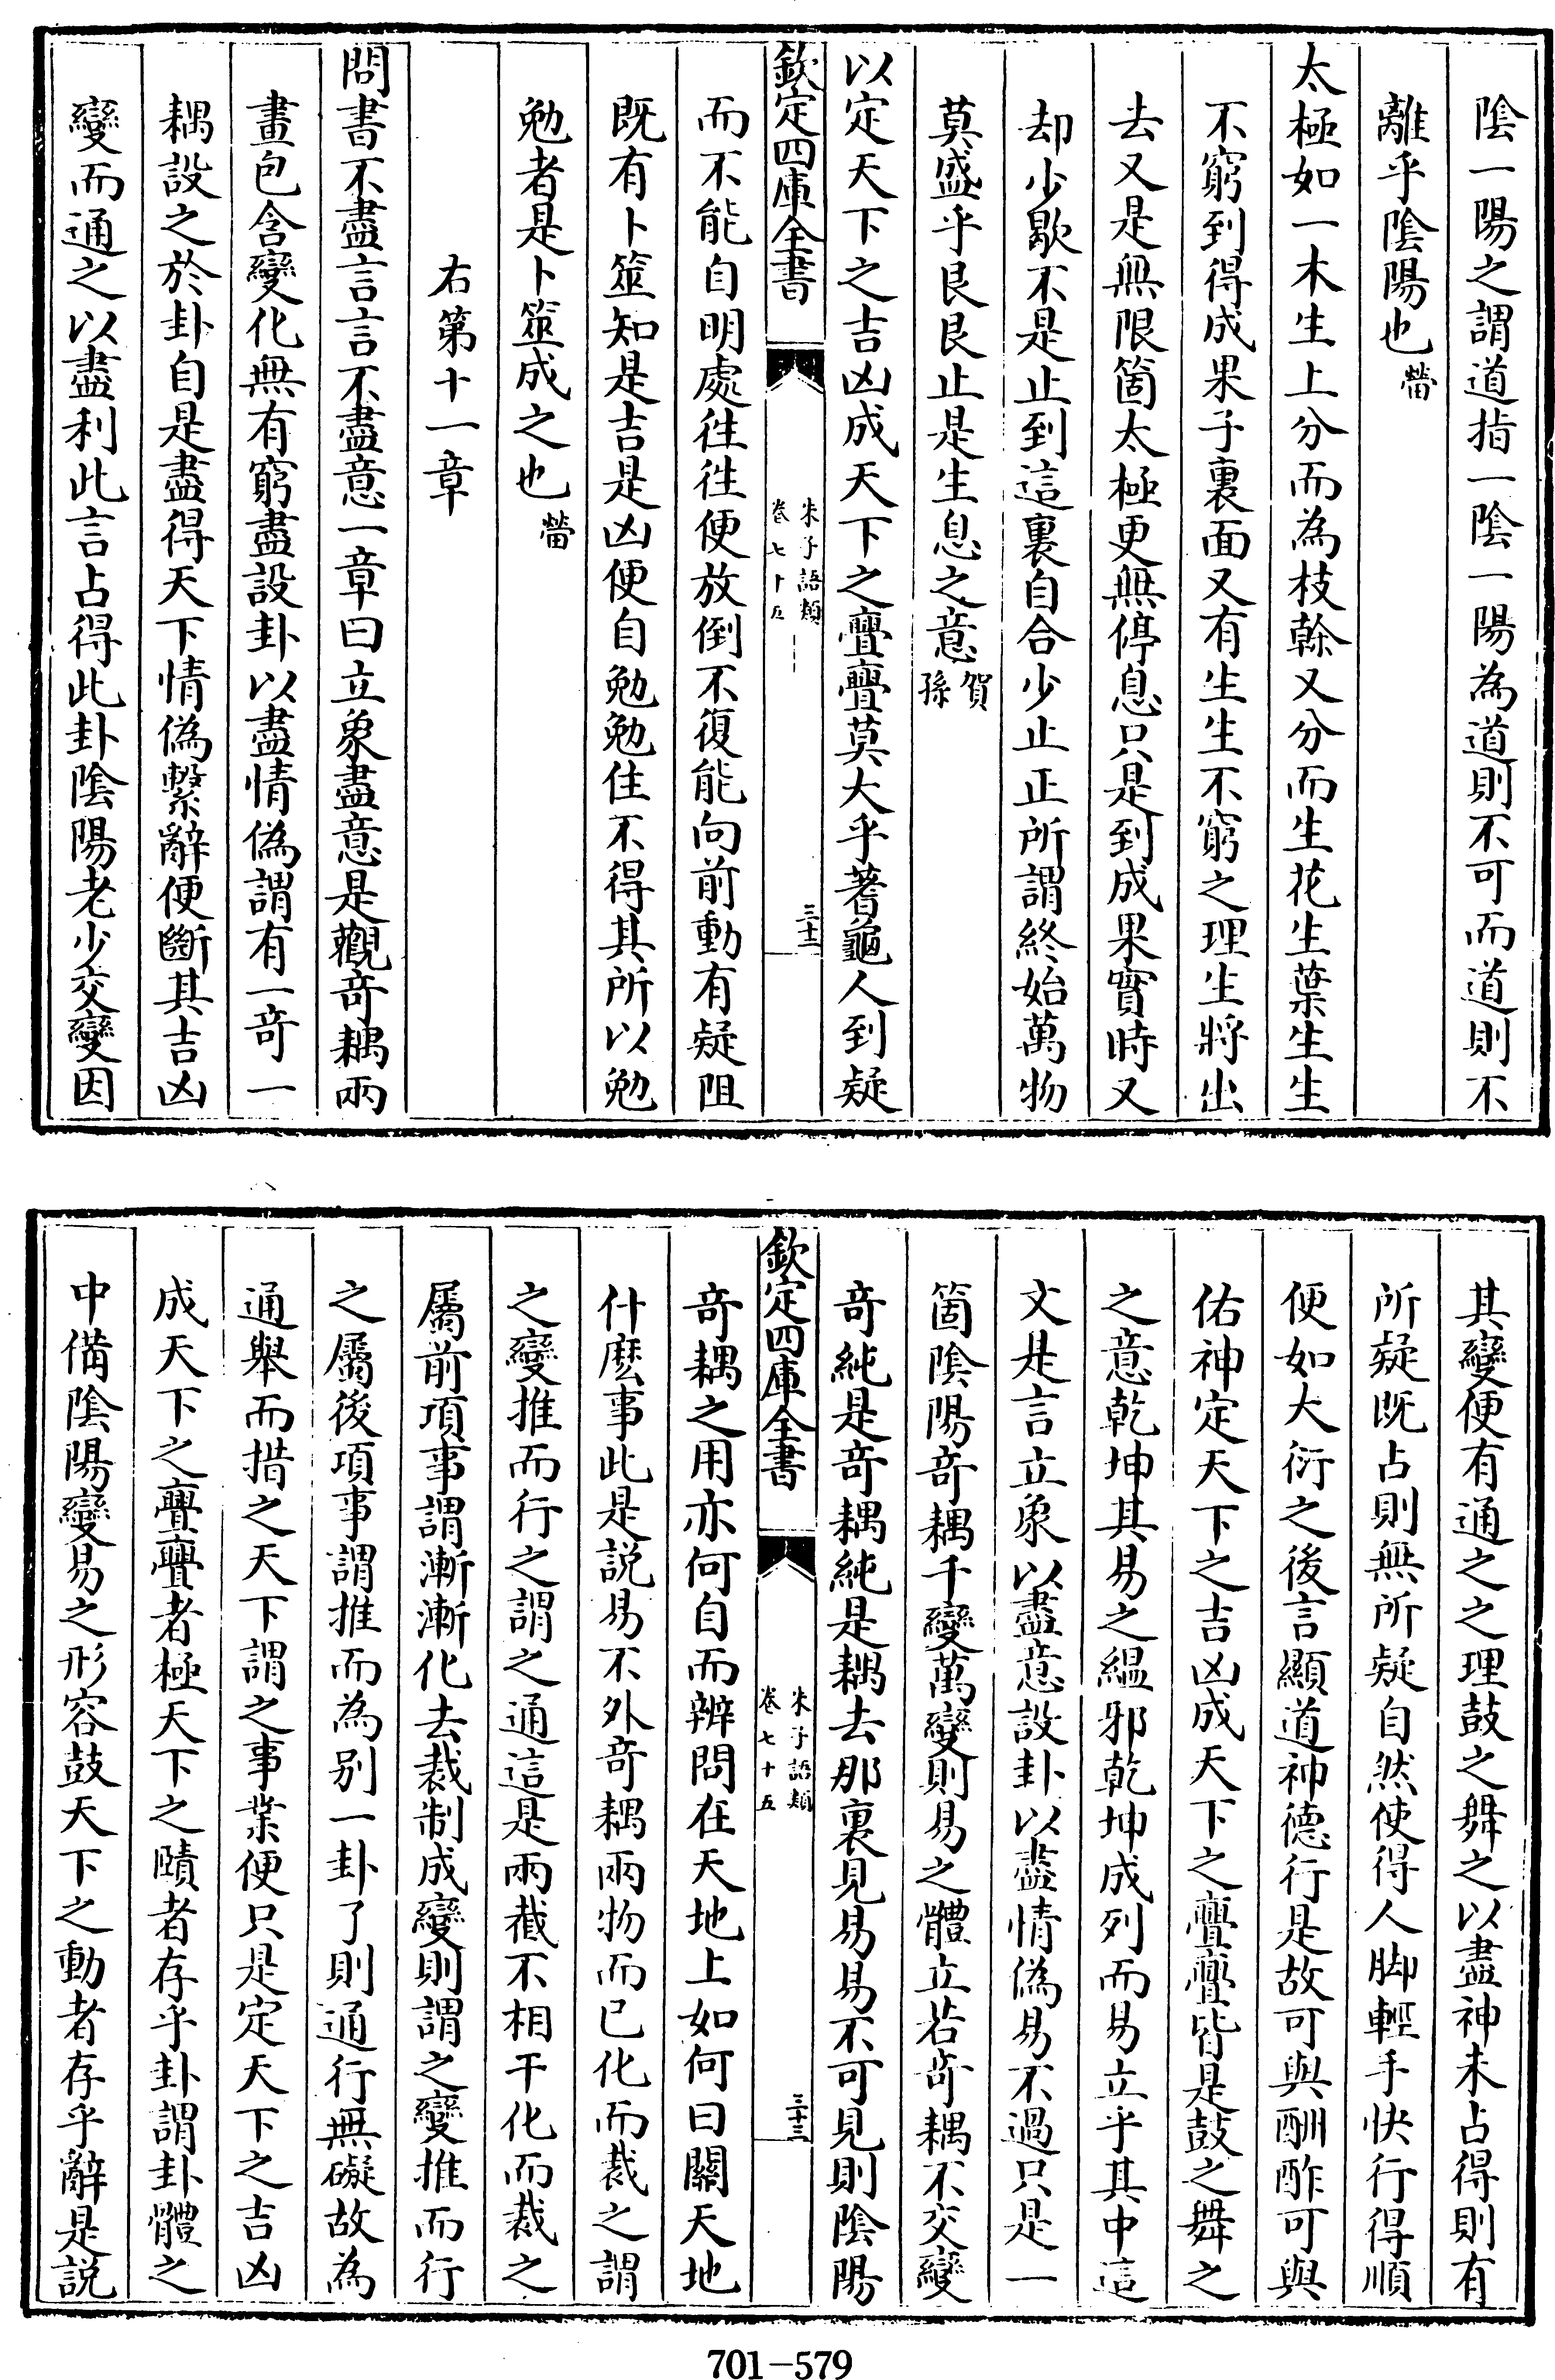 陰一陽之謂道指一陰一陽為道則不可而道則不
離乎陰陽也㽦
太極如一木生上分而為枝榦又分而生花生葉生生
不窮到得成果子裏面又有生生不窮之理生將出
去又是無限箇太極更無停息只是到成果實時又
却少歇不是止到這裏自合少止正所謂終始萬物
莫盛乎艮艮止是生息之意賀孫
以定天下之吉凶成天下之亹亹莫大乎蓍龜人到疑
欽定四庫全書
朱子語類
卷七十五
三十二
而不能自明處往往便放倒不復能向前動有疑阻
既有卜筮知是吉是凶便自勉勉住不得其所以勉
勉者是卜筮成之也㽦
右第十一章
問書不盡言言不盡意一章曰立象盡意是觀奇耦兩
畫包含變化無有窮盡設卦以盡情偽謂有一奇一
耦設之於卦自是盡得天下情偽繫辭便斷其吉凶
變而通之以盡利此言占得此卦陰陽老少交變因
其變便有通之之理鼓之舞之以盡神未占得則有
所疑既占則無所疑自然使得人脚輕手快行得順
便如大衍之後言顯道神德行是故可與酬酢可與
佑神定天下之吉凶成天下之亹亹皆是鼓之舞之
之意乾坤其易之緼邪乾坤成列而易立乎其中這
又是言立象以盡意設卦以盡情偽易不過只是一
箇陰陽奇耦千變萬變則易之體立若奇耦不交變
奇純是奇耦純是耦去那裏見易易不可見則陰陽
欽定四庫全書
朱子語類
卷七十五
三十三
奇耦之用亦何自而辨問在天地上如何曰關天地
什麽事此是說易不外奇耦兩物而已化而裁之謂
之變推而行之謂之通這是兩截不相干化而裁之
屬前項事謂漸漸化去裁制成變則謂之變推而行
之屬後項事謂推而為别一卦了則通行無礙故為
通舉而措之天下謂之事業便只是定天下之吉凶
成天下之亹亹者極天下之賾者存乎卦謂卦體之
中備陰陽變易之形容鼓天下之動者存乎辭是説
701-579